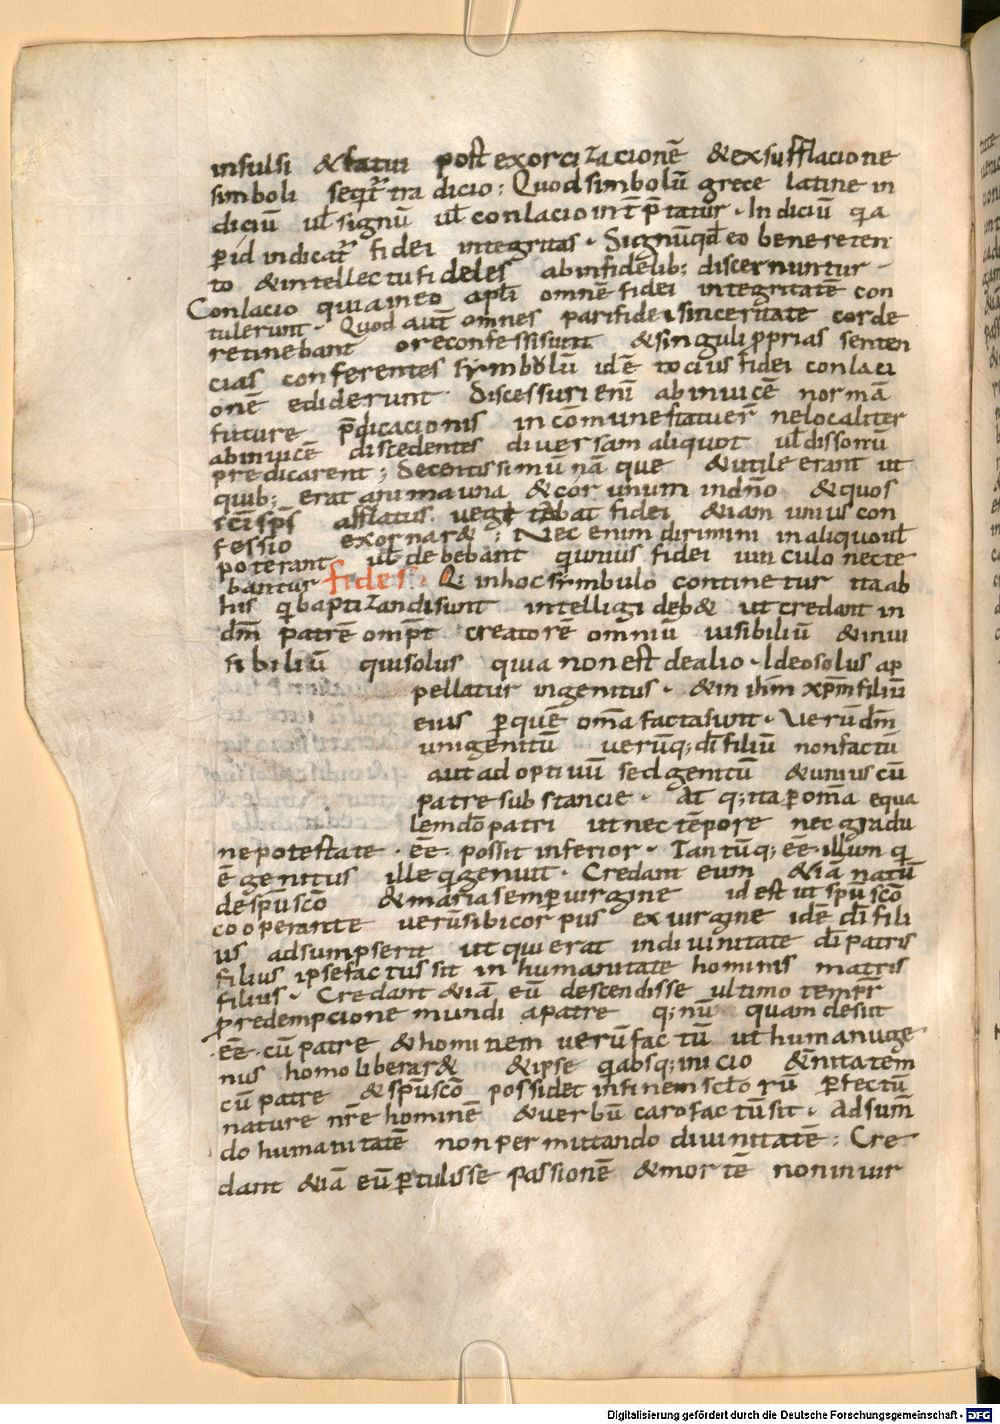 insulsi & fatui post exorcizacionē & exsufflacione
simboli seqt̄ tradicio; Quod simbolū grece latine in
diciū ul̄ signū ul̄ conlacio int̄ p̄tatur. Indiciū q̄a
ꝑ id indicat̄ fidei integritas. Signū qd̄ eo bene reten
to & intellectu fideles ab infidelib; discernuntur
Conlacio quia in eo apl̄i omnē fidei integritatē con
tulerunt. Quod aut̄ omnes pari fidei sinceritate corde
retinebant ore confessi sunt & singuli ꝓprias senten
cias conferentes symbolū idē tocius fidei conlaci
onē ediderunt. Discessuri enī ab inuicē normā
future p̄dicacionis in cōmune statuer̄ ne localiter
abinuicē discedentes diuersam aliquot ul̄ dissonū
predicarent; Decentissimū nā que & utile erant ut
quib; erat anima una & cor unum in dn̄o & quos
sc̄i sp̄s afflatus uegetabat fidei & iam unius con
fessio exornar&; Nec enim dirimi in aliquo ul̄
poterant ul̄ debebant q̄ unius fidei uinculo necte
bantur fides. Q; in hoc symbulo continetur ita ab
his q̄ baptizandi sunt intelligi deb& ut credant in
dm̄ patrē omp̄t creatorē omniū uisibiliū & inui
sibiliū qui solus quia non est de alio. Ideo solus ap
pellatur ingenitus. & in ihm̄ xp̄m filiū
eius ꝑ quē om̄a facta sunt. Uerū dm̄
unigenitū uerūq; dī filiū non factū
aut adoptiuū sed genitū & unius cū
patre substancie. At q; ita ꝑ om̄a equa
lem dō patri ut nec tēpore nec gradu
ne potestate. ēē. possit inferior. Tantūq; ēē. illum q̄
ē genitus ille q̄ genuit. Credant eum & iā natū
de sp̄u scō & maria semꝑ uirgine id est ut sp̄u scō
cooperante uerū sibi corpus ex uirgine idē dī fili
us adsumpserit ut qui erat in diuinitate dī patris
filius ipse factus sit in humanitate hominis matris
filius. Credant & iā eū descendisse ultimo tempr̄
ꝓ redempcione mundi a patre q; nū quam desiit
ēē. cū patre & hominem uerū factū ut humanu ge
nus homo liberar& & ipse q̄ absq; inicio &̄nitatem
cū patre & sp̄u scō possidet in finem sc̄lorū ꝑfectū
nature nr̄e hominē & uerbū caro factū sit. Adsum̄
do humanitatē non permittando diuinitatē; Cre
dant & iā eū ꝑtulisse passionē & mortē non in uir
Digitalisierung gefördert durch die Deutsche Forschungsgemeinschaft - DFG